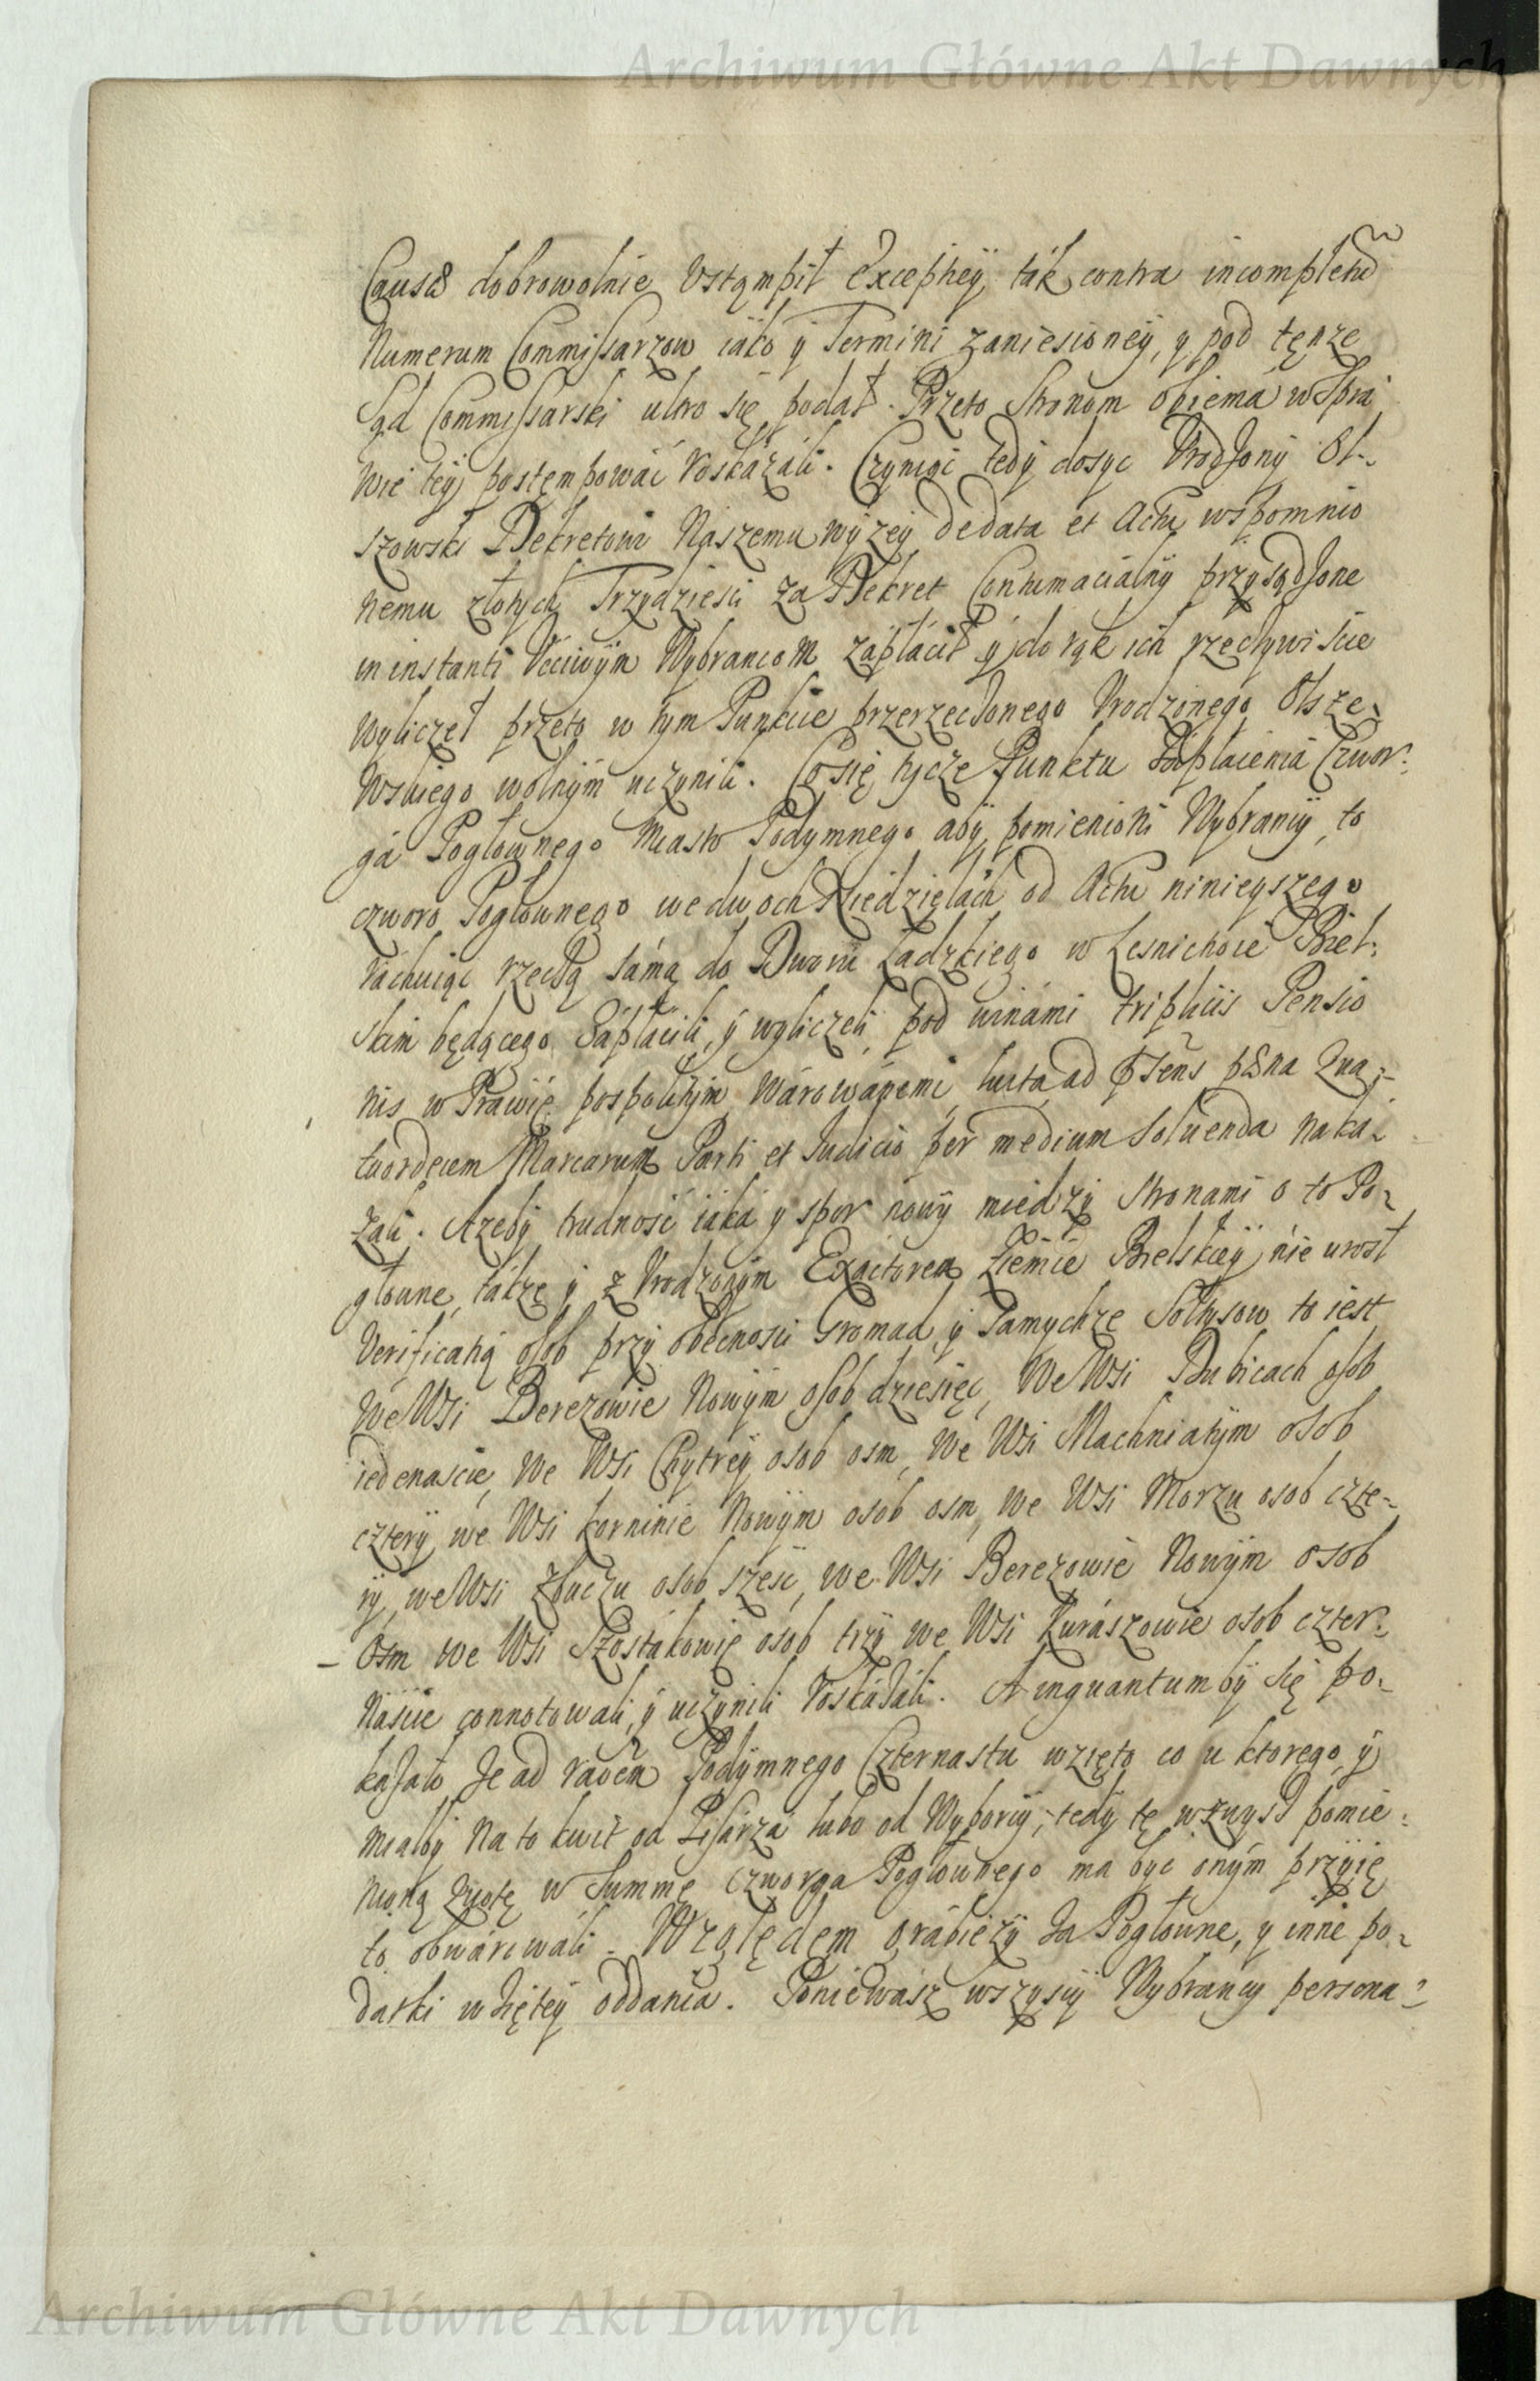 Archiwum Główne Akt Dawnych
Causa dobrowolnie Vstąmpił Excepheÿ ták contra incompletũ
Numerum Commissarzow iáko ÿ Termini zaniesioneÿ, y pod tęnze
Sąd Commissarski ultro się podał. Przeto Stronom obiema w Spra
wie teÿ postęmpowáć roskázáli. Czyniąc tedÿ dosyc Vrodzonÿ Ol-
szowski Dekretowi Naszemu wÿzeÿ de data et Actu wspomnio
nemu złotÿch Trzydziesci za Dekret Contumacialnÿ przysądzone
in instanti Vcciwÿm Wybrancom zápłácił ÿ do rąk ich rzeczÿwiscie
wyliczeł przeto w tym Punkcie przerzeczonego Vrodzonego Olsze-
wskiego wolnÿm uczynili. Co się tycze Punktu Zapłacenia Czwor-
gá Pogłownego miasto Podymnego abÿ pomienioni Wybrancÿ to
czworo Pogłownego we dwoch Niedzielách od Actu ninieyszego
ráchuiąc rzeczą sámą do Dworu Ladzkiego w Lesnictwie Biel-
skim będącego Zápłácili, ÿ wyliczeli pod winámi triplicis Pensio
nis w Práwie pospolitÿm wárowánemi, luita ad p̃sens pæna Qua-
tuordecem Marcarum Parti et Iudicio per medium soluenda naká-
zali. Azebÿ trudność iáka y spor nowÿ miedzÿ Stronami o to Po-
głowne, tákze ÿ z Vrodzonÿm Exactorem Ziemie Bielskieÿ nie urosł
Verificatią osob przÿ obecnosci Gromad ÿ Samychze Sołtysow to iest
We Wsi Berezowie Nowÿm osob dziesięc, We Wsi Dubicach osob
iedenascie, We Wsi Chytreÿ osob osm, We Wsi Machniatÿm osob
czterÿ, we Wsi Korninie Nowÿm osob osm, we Wsi Morzu osob czte-
rÿ, we Wsi Zbuczu osob szesc, we Wsi Berezowie Nowÿm osob
Osm we Wsi Szostákowie osob trzÿ we Wsi Kurászowie osob czter-
náscie connotowali, ÿ uczynili roskázáli. A inquantum bÿ się po-
kazało ze ad raoem Podÿmnego Czternastu wzięto co u ktorego, ÿ
miałbÿ na to kwit od Pisárza lubo od Wyborcÿ, tedÿ tę wzwysz pomie-
nioną kwotę w Summę czworga Pogłownego ma byc onÿm przÿię
to obwárowáli. Względem grábiezÿ za Pogłowne, y inne po-
datki wziętéÿ oddania. Poniewász wszyscÿ Wybrancÿ persona-
Archiwum Główne Akt Dawnych